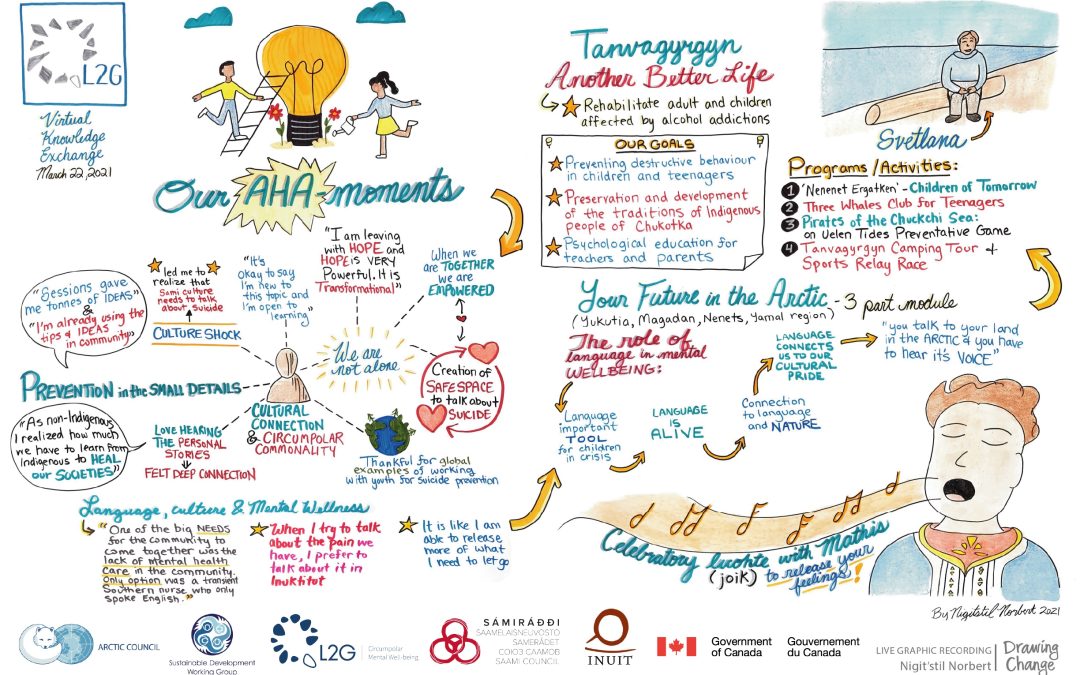 L2G
Virtual
Knowledge
Exchange
March 22, 2021
Our AHA-moments
"Sessions gave
me tonnes of IDEAS"
&
"I'm already using the
tips & IDEAS
in community"
led me to
realize that
Sami culture
needs to talk
about Suicide
CULTURE SHOCK
"It's
okay to say
I'm new to
this topic and
I'm open to
learning"
"I am leaving
with HOPE and
HOPE is VERY
Powerful. It is
Transformational"
When we
are TOGETHER
we are
EMPOWERED
We are
not alone
Creation of
SAFE SPACE
to talk about
SUICIDE
PREVENTION in the SMALL DETAILS
"As non-Indigenous
I realized how much
we have to learn from
Indigenous to HEAL
our SOCIETIES"
LOVE HEARING
THE PERSONAL
STORIES
FELT DEEP CONNECTION
CULTURAL
CONNECTION
& CIRCUMPOLAR
COMMONALITY
Thankful for global
examples of working
with youth for suicide prevention
Language, culture & Mental Wellness
"One of the big NEEDS
for the community to
come together was the
lack of mental health
care in the community.
Only option was a transient
Southern nurse who only
spoke English."
When I try to talk
about the pain we
have, I prefer to
talk about it in
Inuktitot
It is like I am
able to release
more of what
I need to let go
Tanvagyrgyn
Another Better Life
Rehabilitate adult and children
affected by alcohol addictions
OUR GOALS
Preventing destructive behaviour
in children and teenagers
Preservation and development
of the traditions of Indigenous
people of Chukotka
Psychological education for
teachers and parents
Svetlana
Programs/Activities:
1 'Nenenet Ergatken' - Children of Tomorrow
2 Three Whales Club for Teenagers
3 Pirates of the Chuckchi Sea:
on Uelen Tides Preventative Game
4 Tanvagyrgyn Camping Tour +
Sports Relay Race
Your Future in the Arctic - 3 part module
(Yukutia, Magadan, Nenets, Yamal region)
The role of
language in mental
WELLBEING:
Language
important
TOOL
for children
in crisis
LANGUAGE
IS
ALIVE
Connection
to language
and NATURE
LANGUAGE
CONNECTS
US TO OUR
CULTURAL
PRIDE
"you talk to your land
in the ARCTIC & you have
to hear it's VOICE"
Celebratory luohte with Mathis
(joik) to release your
feelings!
By Nigitstil Norbert 2021
ARCTIC COUNCIL
Sustainable Development
Working Group
L2G
Circumpolar
Mental Well-being
SÁMIRÁĐĐI
SAAMELAISNEUVOSTO
SAMERÅDET
СОЮЗ СААМОВ
SAAMI COUNCIL
INUIT
Government
of Canada
Gouvernement
du Canada
LIVE GRAPHIC RECORDING
Nigit'stil Norbert
Drawing
Change